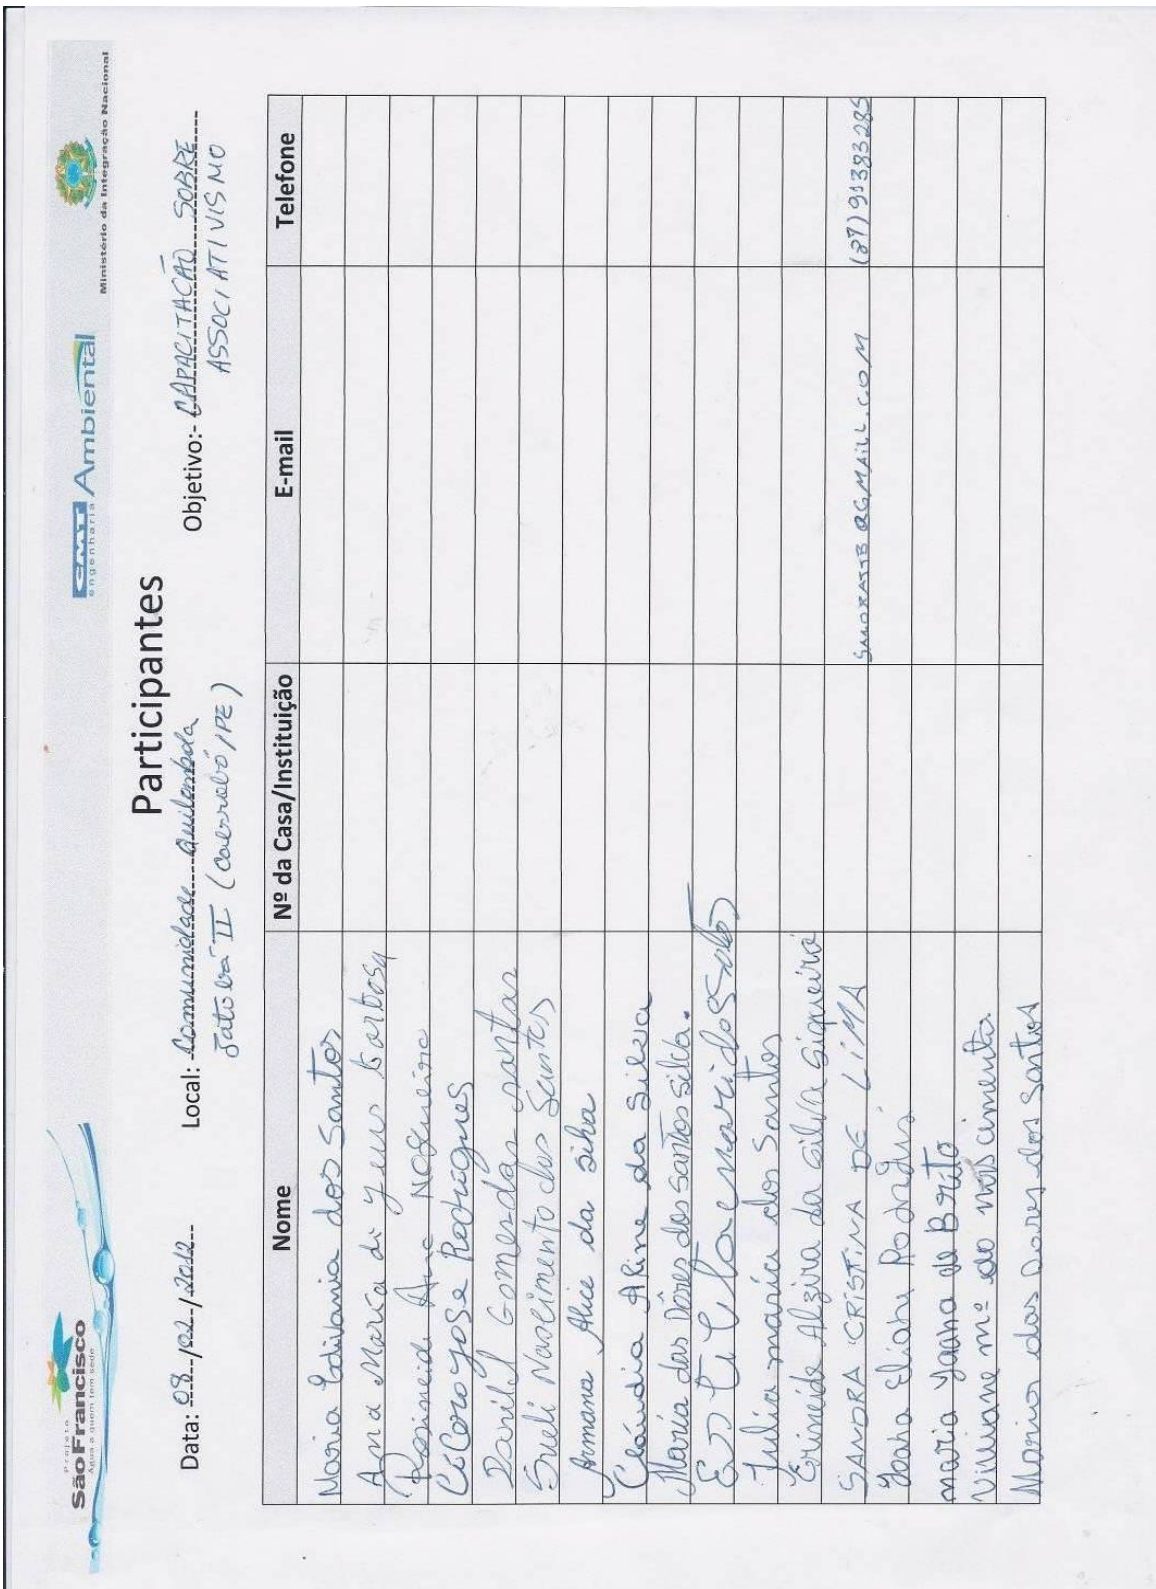 Projeto
São Francisco
Água a quem tem sede
CMT Ambiental
engenharia
Ministério da Integração Nacional
Participantes
Data: 08/02/2012 Local: Comunidade Quilombola Objetivo:- CAPACITAÇÃO SOBRE
Jatobá II (Cabrobó/PE) ASSOCIATIVISMO
Nome Nº da Casa/Instituição E-mail Telefone
Maria Edilania dos Santos
Ana Marca de barbosa
Rosineide Ana Nogueira
Rodrigues
Gomes das santas
Sueli Nascimento dos Santos
Armana Alice da silva
Cláudia Aline da Silva
Maria das Dôres dos santos silva.

Julia maria dos Santos
Erineide Alzira da Silva Siqueira
SANDRA CRISTINA DE LIMA (87)91383285
Joana Eliane
maria Joana de Brito
Viviane mª do nascimento
Maria das Dores dos Santos